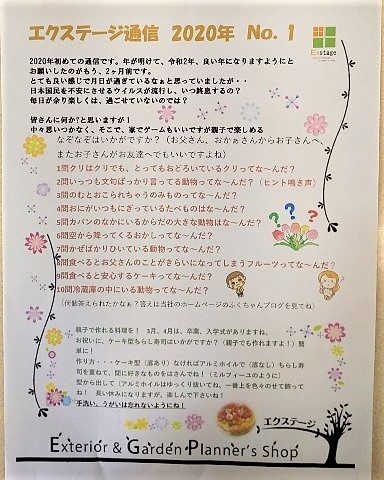 エクステージ通信 2020年 No. 1
Exstage
2020年初めての通信です。年が明けて、令和2年、良い年になりますようにと
お願いしたのがもう、2ヶ月前です。
とても良い感じで月日が過ぎているなぁと思っていましたが・・
日本国民を不安にさせるウイルスが流行し、いつ終息するの？
毎日が余り楽しくは、過ごせていないのでは？
皆さんに何か?と思いますが！
中々思いつかなく、そこで、家でゲームもいいですが親子で楽しめる
なぞなぞはいかがですか？（お父さん、おかぁさんからお子さんへ、
またお子さんがお友達へでもいいですよね）
1問クリはクリでも、とってもおどろいているクリってな～んだ？
2問いっつも文句ばっかり言ってる動物ってな～んだ？（ヒント鳴き声）
3問のむとおこられちゃうのみものって、な～んだ？
4問おにがいつもにぎっているたべものはな～んだ？
5問カバンのなかにいるからだの大きな動物はな～んだ？
6問空から降ってくるおかしってな～んだ？
7問かぜばかりひいている動物ってな～んだ？
8問食べるとお父さんのことがきらいになってしまうフルーツってな～んだ？
9問食べると安心するケーキってな～んだ？
10問冷蔵庫の中にいる動物ってな～んだ？
（何個答えられたかなぁ？答えは当社のホームページのふくちゃんブログを見てね）
親子で作れる料理を！ 3月、4月は、卒業、入学式がありますね。
お祝いに、ケーキ型ちらし寿司はいかがですか？（親子でも作れますよ！）簡
単に！
作り方・・・ケーキ型（底あり）なければアルミホイルで（底なし）ちらし寿
司を重ねて、間に好きなものをはさんでね！（ミルフィーユのように）
型から出して（アルミホイルはゆっくり抜いてね、一番上を色々のせて飾って
ね！ 長い休みになりますが、楽しんで下さいね！
手洗い、うがいは忘れないようにね！
エクステージ
Exterior & Garden Planner's Shop